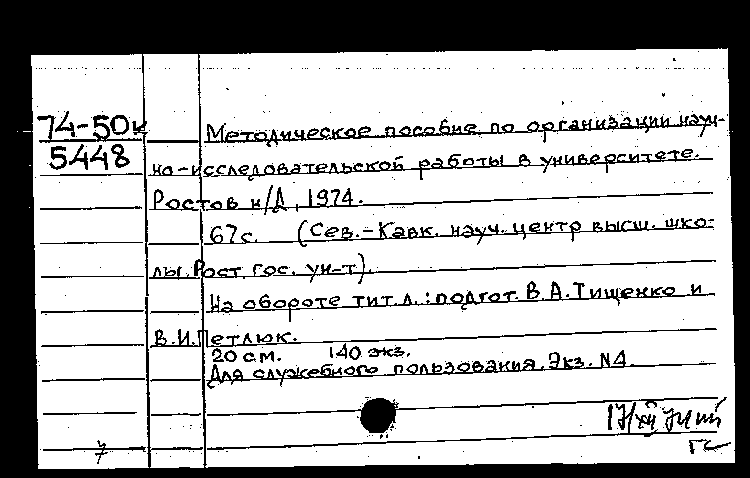 74-50к
5448
Методическое пособие по организации науч-
но-исследовательской работы в университете.
Ростов н/Д, 1974.
67с. (Сев.-Кавк. науч. центр высш. шко-
лы. Рост. гос. ун-т).
На обороте тит. л.: подгот. В.А. Тищенко и
В.И. Петлюк.
20 см. 140 экз.
Для служебного пользования. Экз. N4
7
ГС